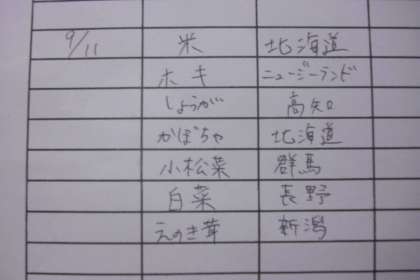 9/11 米 北海道
ホキ ニュージーランド
しょうが 高知
かぼちゃ 北海道
小松菜 群馬
白菜 長野
えのき茸 新潟